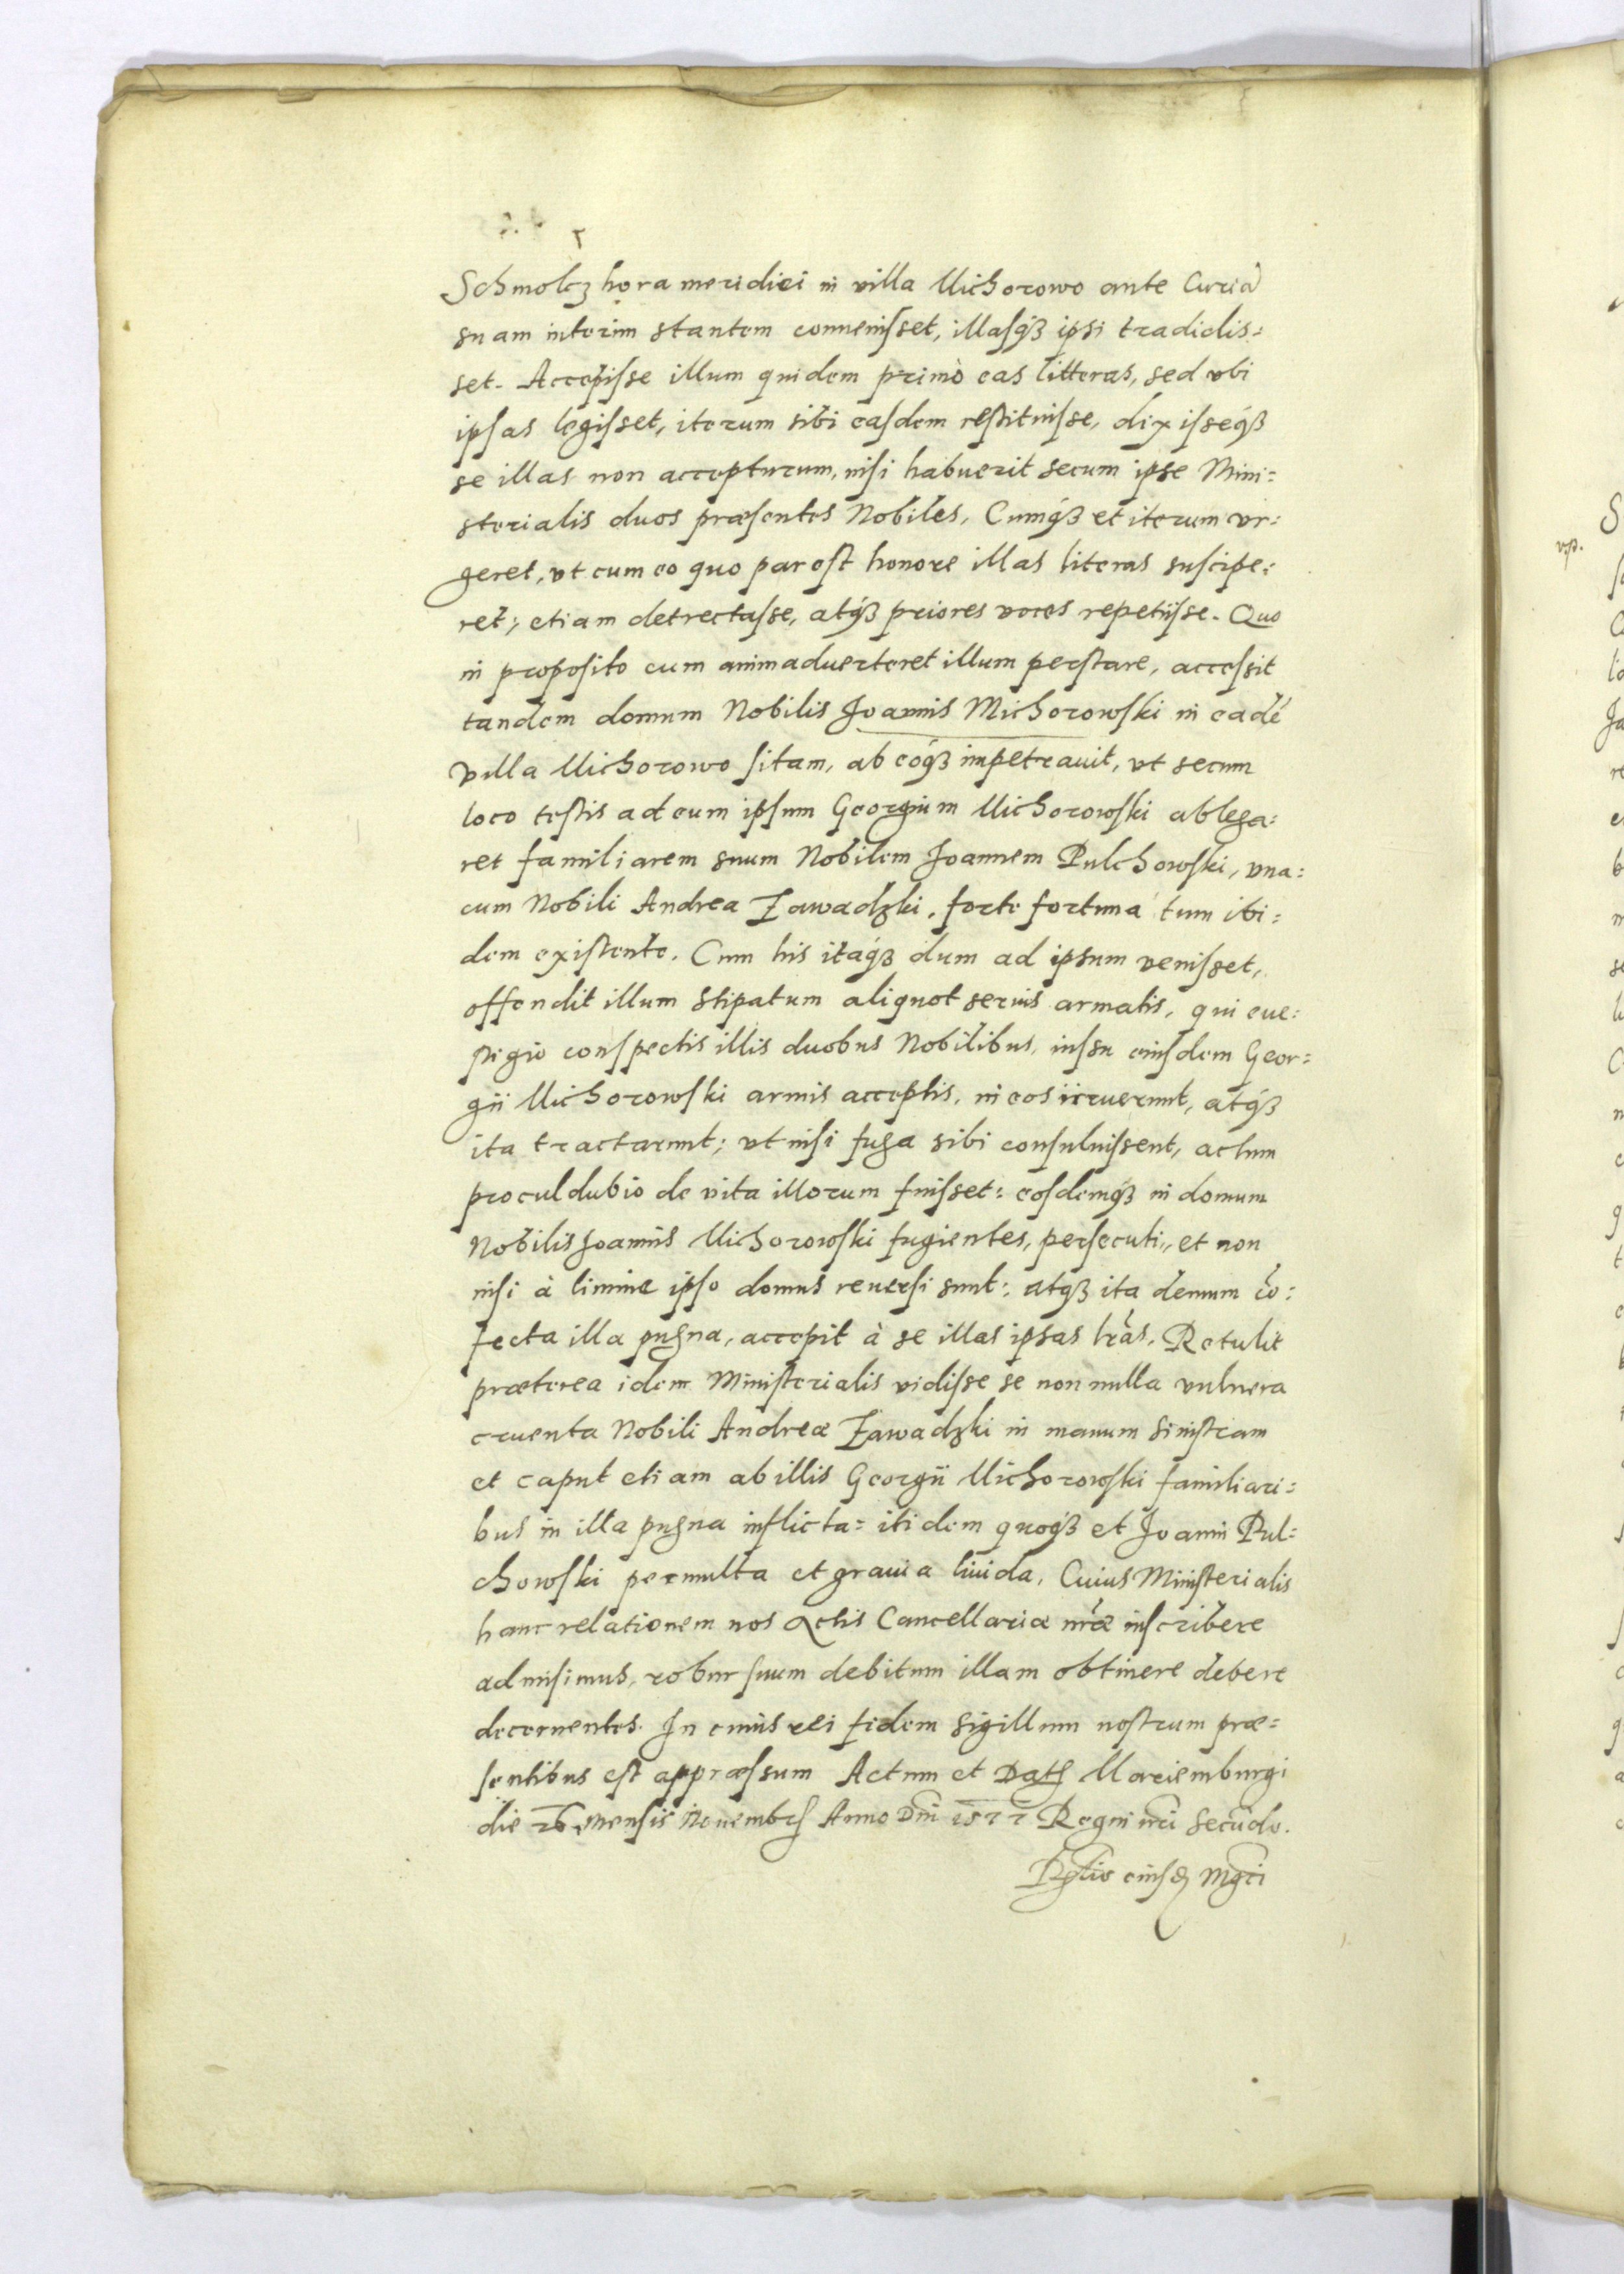 Schmolcz hora meridiei in villa Michorowo ante Curiã
suam interim stantem conuenisset, illasq́ꝫ ipsi tradidis=
set. Accepisse illum quidem primò eas litteras, sed vbi
ipsas legisset, iterum sibi easdem restituisse, dixisseq́ꝫ
se illas non accepturum, nisi habuerit secum ipse Mini=
sterialis duos præsentes Nobiles, Cumq́ꝫ et iterum vr=
geret, vt cum eo quo par est honore illas literas suscipe=
ret; etiam detrectasse, atq́ꝫ priores voces repetijsse. Quo
in proposito cum animaduerteret illum perstare, accessit
tandem domum Nobilis Joannis Michorowski in eadẽ
villa Michorowo sitam, ab eoq́ꝫ impetrauit, vt secum
loco testis ad eum ipsum Georgium Michorowski ablega=
ret familiarem suum Nobilem Joannem Pulchowski, vna=
cum Nobili Andrea Zawadzki, forte fortuna tum ibi=
dem existente. Cum his itaq́ꝫ dum ad ipsum venisset,
offendit illum stipatum aliquot seruis armatis, qui eue=
stigio conspectis illis duobus Nobilibus, iussu eiusdem Geor=
gii Michorowski armis acceptis, in eos irruerunt, atq́ꝫ
ita tractarunt; vt nisi fuga sibi consuluissent, actum
proculdubio de vita illorum fuisset: eosdemq́ꝫ in domum
Nobilis Joannis Michorowski fugientes, persecuti, et non
nisi à limine ipso domus reuersi sunt: atqꝫ ita demum cõ=
fecta illa pugna, accepit à se illas ipsas lr̃as. Retulit
præterea idem Ministerialis vidisse se nonnulla vulnera
cruenta Nobili Andreæ Zawadzki in manum sinistram
et caput etiam ab illis Georgii Michorowski familiari=
bus in illa pugna inflicta= itidem quoq́ꝫ et Joanni Pul=
chowski permulta et grauia liuida, Cuius Ministerialis
hanc relationem nos Actis Cancellariæ nr̃æ inscribere
admisimus, robur suum debitum illam obtinere debere
decernentes. In cuius rei fidem sigillum nostrum præ=
sentibus est appræssum Actum et Datꝭ Mariemburgi
die 26 mensis Nouembrꝭ Anno Dñi 1577 Regni nr̃i secũdo.
Rl̃tio eiusdꝭ Mgc̃i